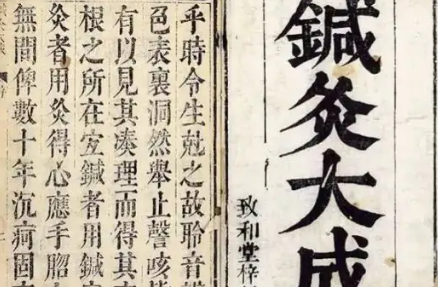 鍼灸大成
致和堂梓
乎時令生尅之故聆音
色表裏洞然舉止謦咳
有以見其湊理而得其
根之所在宜鍼者用鍼
灸者用灸得心應手
無間俾數十年沉疴固